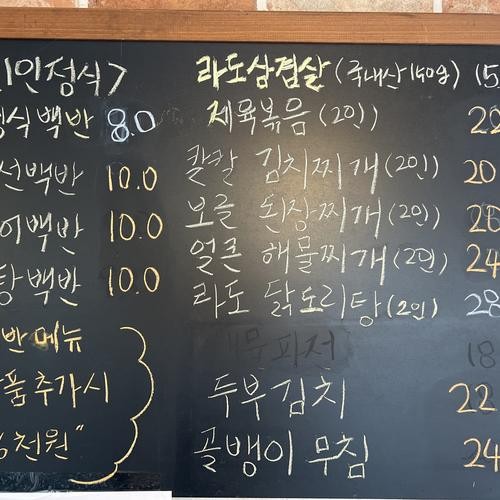 인정식7
백반 8.0
선백반 10.0
어백반 10.0
탕백반 10.0
반메뉴
품추가시
천원"
라도삼겹살 (국내산 150g) (5
제육볶음 (2인)
칼칼 김치찌개 (2인) 20
보글 된장찌개 (2인) 20
얼큰 해물찌개 (2인) 24
라도 닭도리탕 (2인) 28
해물파전 18
두부김치 22
골뱅이 무침 24